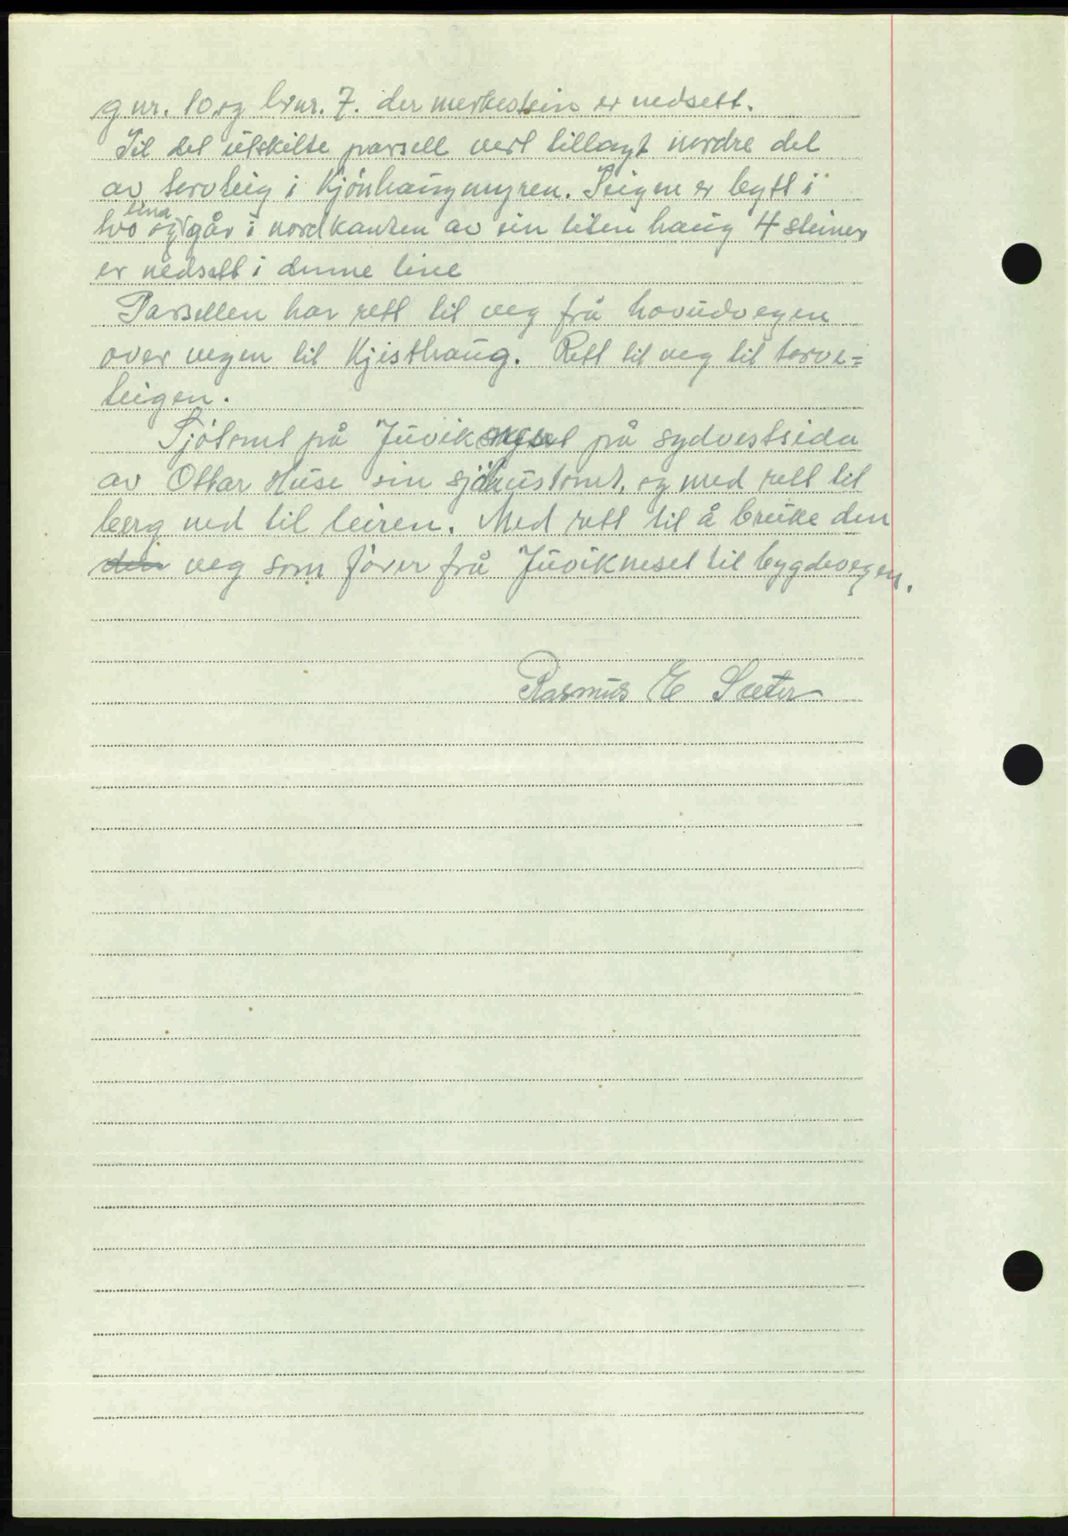 gnr. 10 og brnr. 7. der merkestein er nedsett.
Til det utskilte parsell vert tillagt nordre del
av torvteig i Kjönhaugmyren. Teigen er bytt i
tvo og lina går i nordkanten av ein liten haug 4 steiner
er nedsett i denne line
Parsellen har rett til veg frå hovudvegen
over vegen til Kjisthaug. Rett til veg til torve=
teigen.
Sjötomt på Juvikneset på sydvestsida
av Ottar Huse sin sjöhustomt. og med rett til
berg ned til leiren. Med rett til å bruke den
den veg som förer frå Juvikneset til bygdevegen.
Rasmus E Sæter